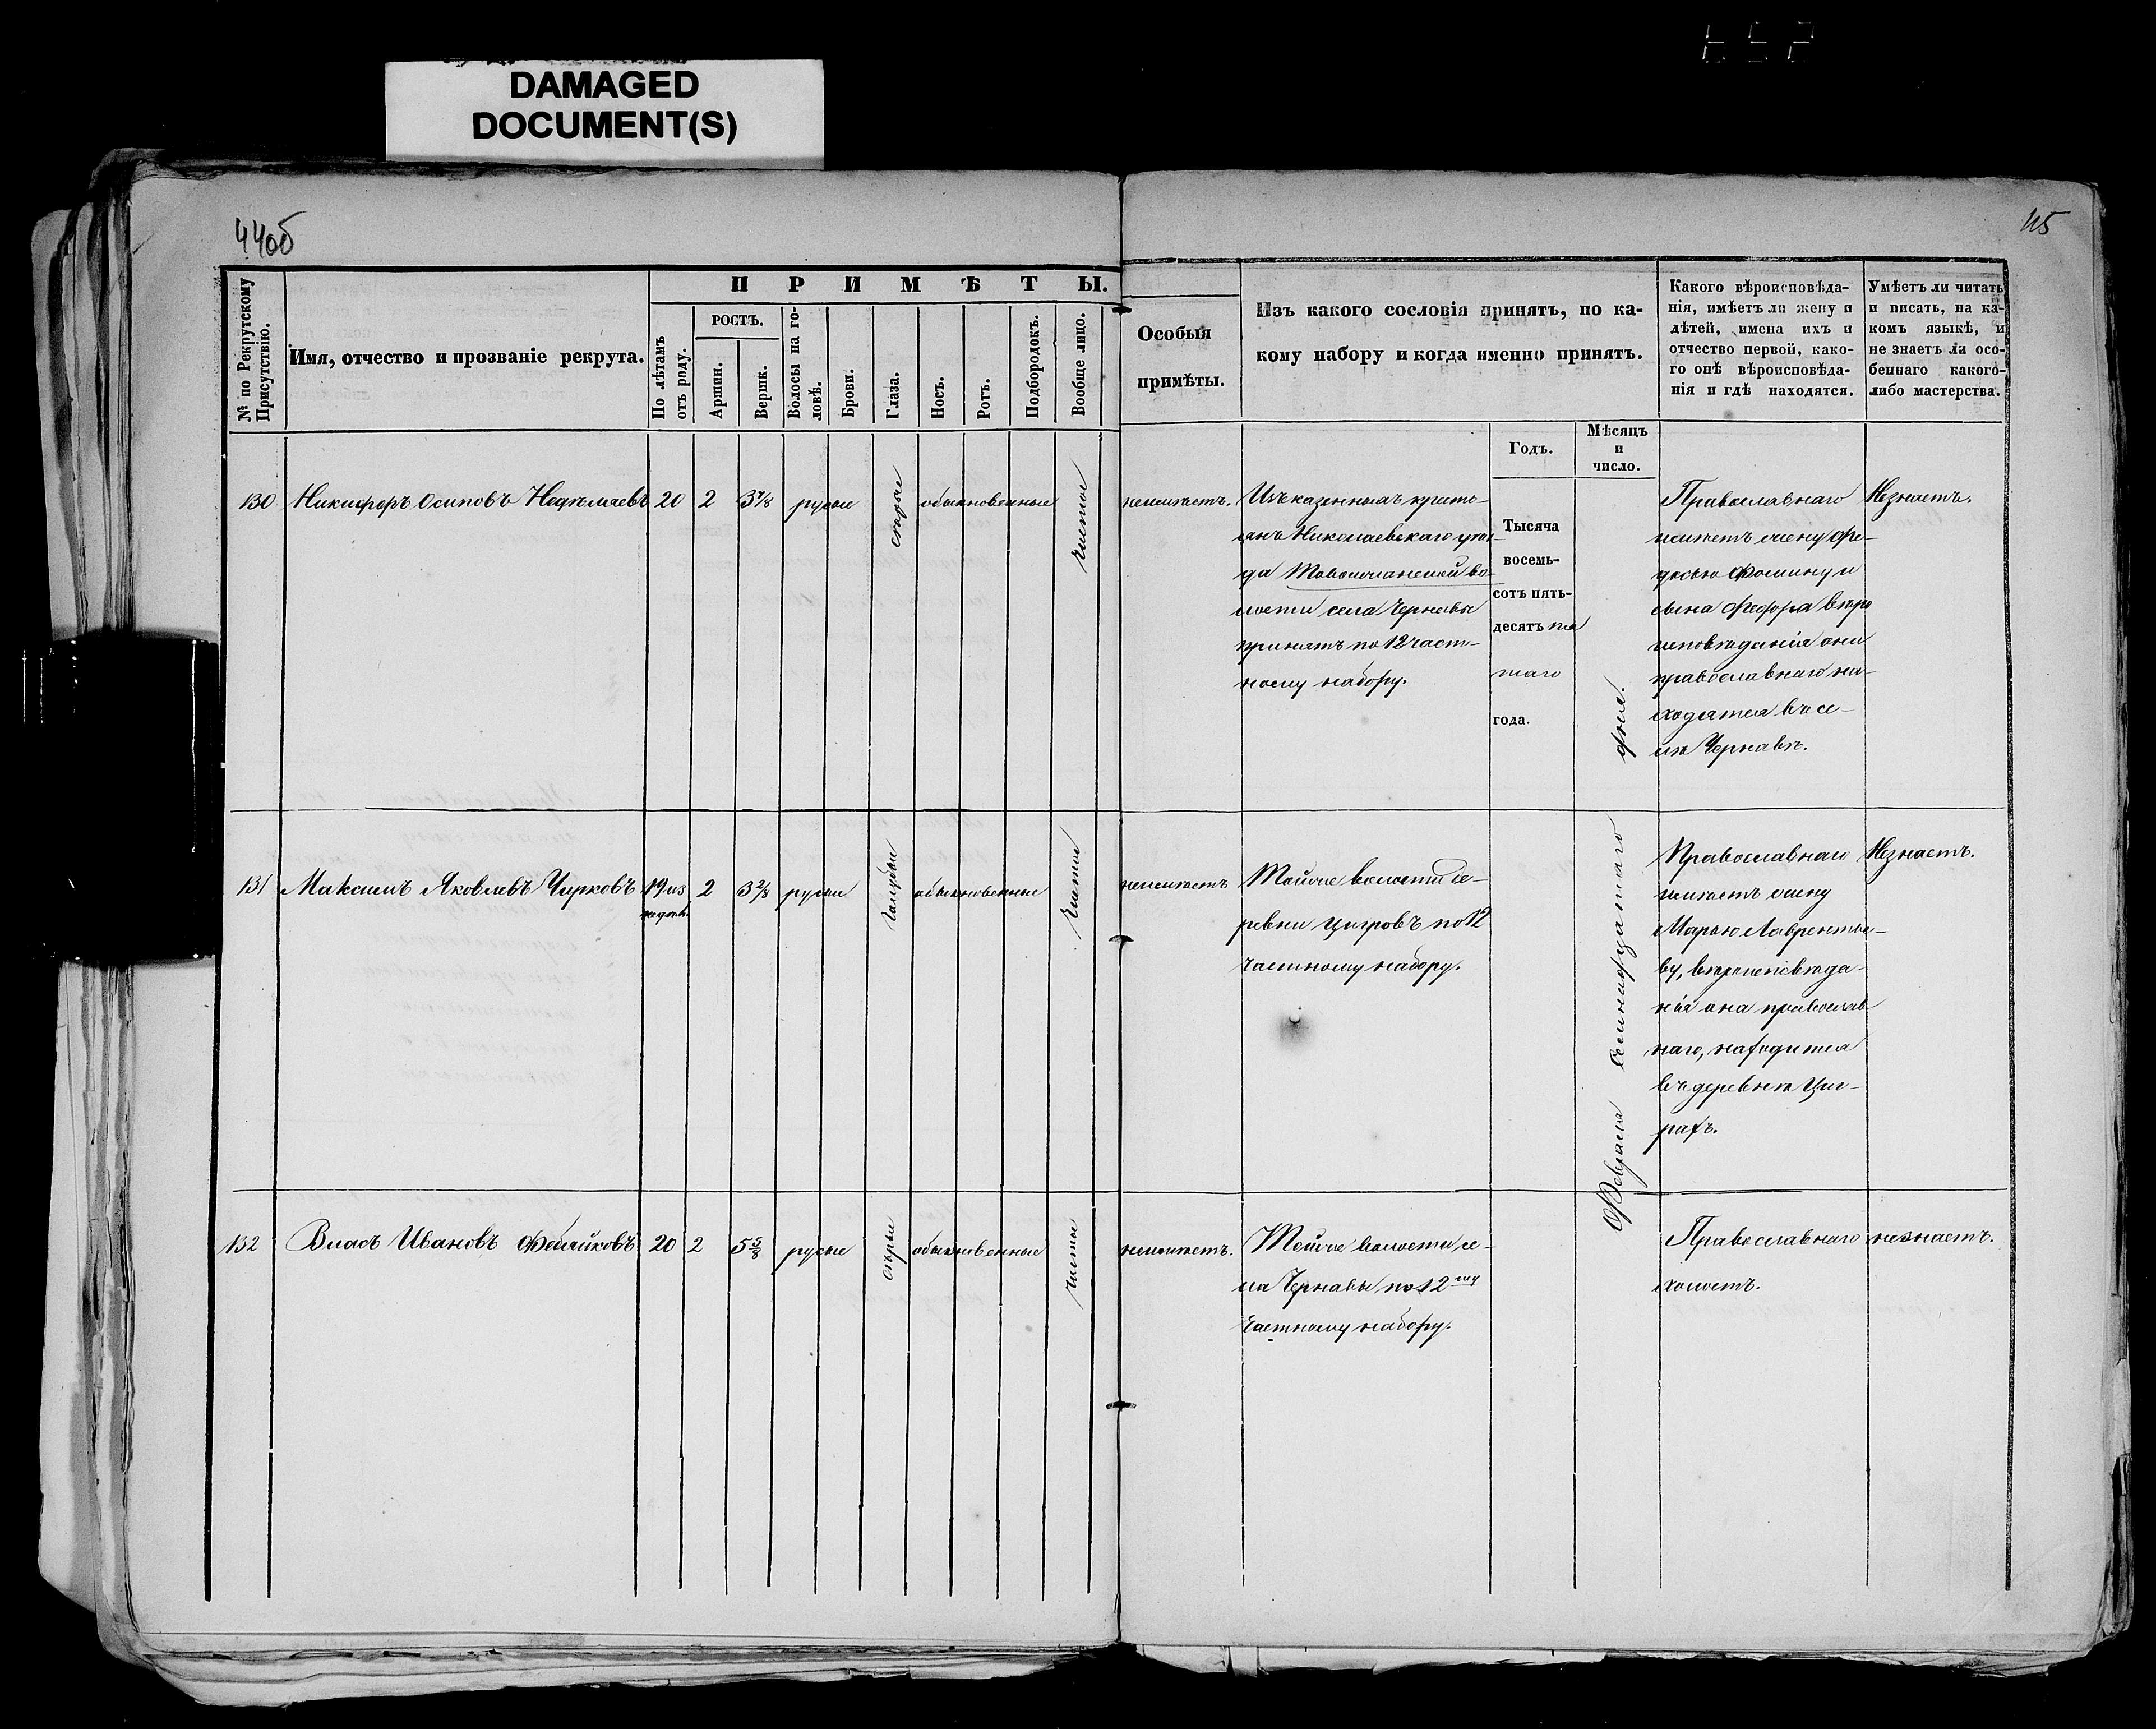 DAMAGED
DOCUMENT(S)
44об
45
№ по Рекрутскому
Присутствію.
Имя, отчество и прозваніе рекрута.
ПРИМѢТЫ.
По лѣтамъ
отъ роду.
РОСТЪ.
Аршин.
Вершк.
Волосы на го-
ловѣ.
Брови.
Глаза.
Носъ.
Ротъ.
Подбородокъ.
Вообще лицо.
Особыя
примѣты.
Изъ какого сословія принятъ, по ка-
кому набору и когда именно принятъ.
Годъ.
Мѣсяцъ
и
число.
Какого вѣроисповѣда-
нія, имѣетъ ли жену и
дѣтей, имена ихъ и
отчество первой, како-
го онѣ вѣроисповѣда-
нія и гдѣ находятся.
Умѣетъ ли читать
и писать, на ка-
комъ языкѣ, и
не знаетъ ли осо-
беннаго какого-
либо мастерства.
130 Никифоръ Осиповъ 20 2 3 7/8 русые сѣрые обыкновенные чистое
неимѣетъ.
Изъ казенныхъ кресть-
янъ Николаевскаго уѣз-
да во-
лости села Чернавы
принятъ по 12 част-
ному набору.
Тысяча
восемь-
сотъ пять-
десятъ пя
таго
года.
Февраля семнадцатаго дня.
Православнаго
имѣетъ жену Фе-
досью Фомину и
сына Федора вѣро
исповѣданія они
православнаго на-
ходятся въ се-
лѣ Чернавѣ.
Незнаетъ.
131 Максимъ Яковлевъ Чирковъ 19 2 3 2/8 русые голубые обыкновенные чистое
неимѣетъ
Тойже волости де-
ревни Цигровъ по 12
частному набору.
Православнаго
имѣетъ жену
Марью Лаврентье-
ву, вѣроисповѣда-
нія она православ
наго, находится
въ деревнѣ Циг-
рахъ.
Незнаетъ.
132 Власъ Ивановъ 20 2 5 5/8 русые сѣрые обыкновенные чистое
неимѣетъ.
Тойже волости се-
ла Чернавы по 12 му
частному набору.
Православнаго
холостъ.
незнаетъ.